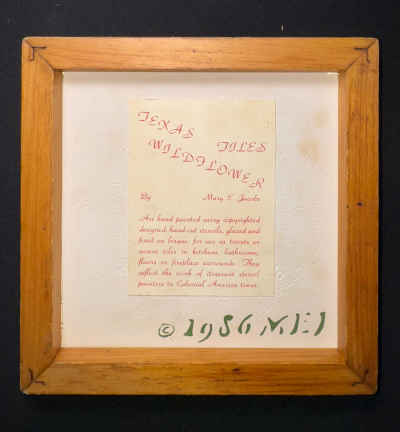 TEXAS TILES
WILDFLOWER
By Mary E. Jacobs
Are hand painted using copyrighted
designed hand-cut stencils, glazed and
fired on bisque for use as trivets or
accent tiles in kitchens, bathrooms,
floors or fireplace surrounds. They
reflect the work of itinerant stencil
painters in Colonial America times.
© 1986 MEJ